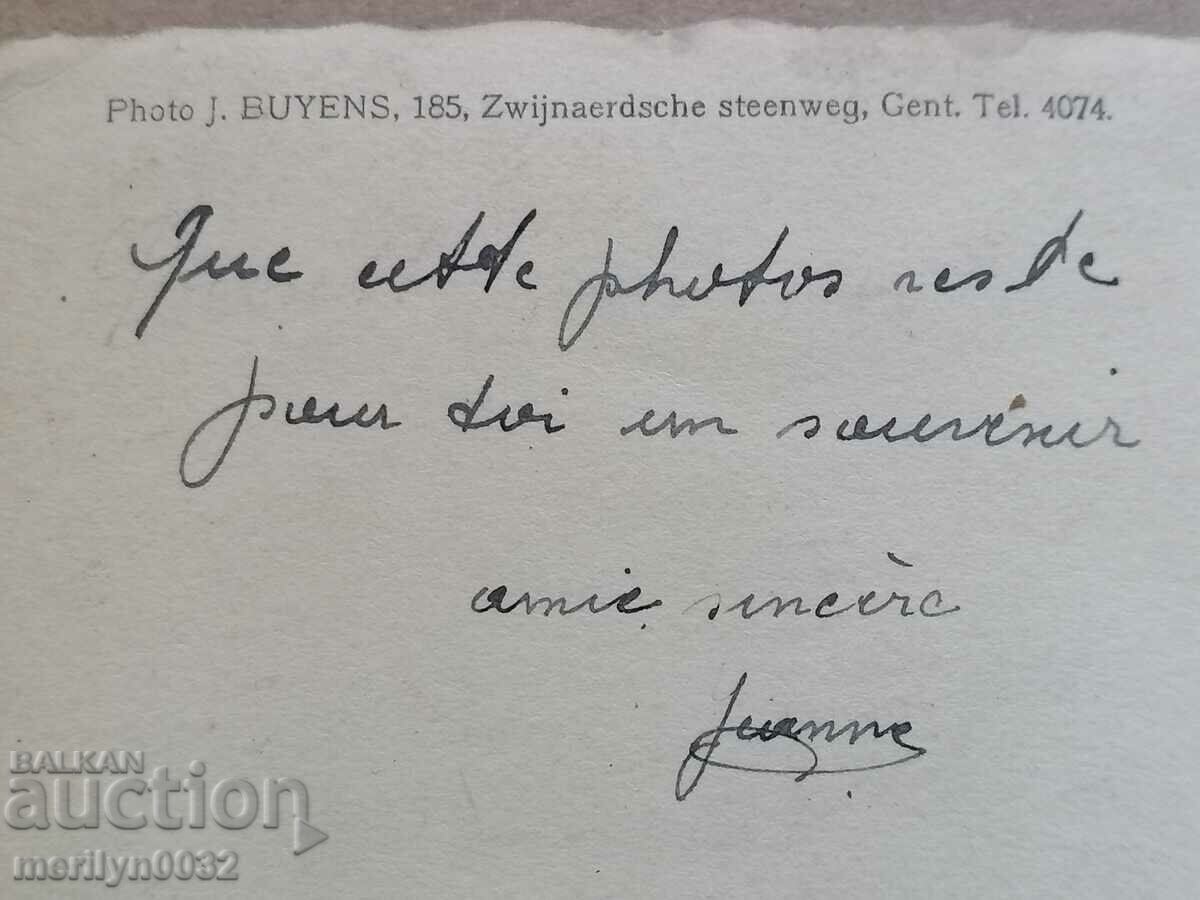 Photo J. BUYENS, 185, Zwijnaerdsche steenweg, Gent. Tel. 4074.
Que cette photos reste
pour toi un souvenir
amie sincère
Jeanne
BALKAN
auction
merilyn0032